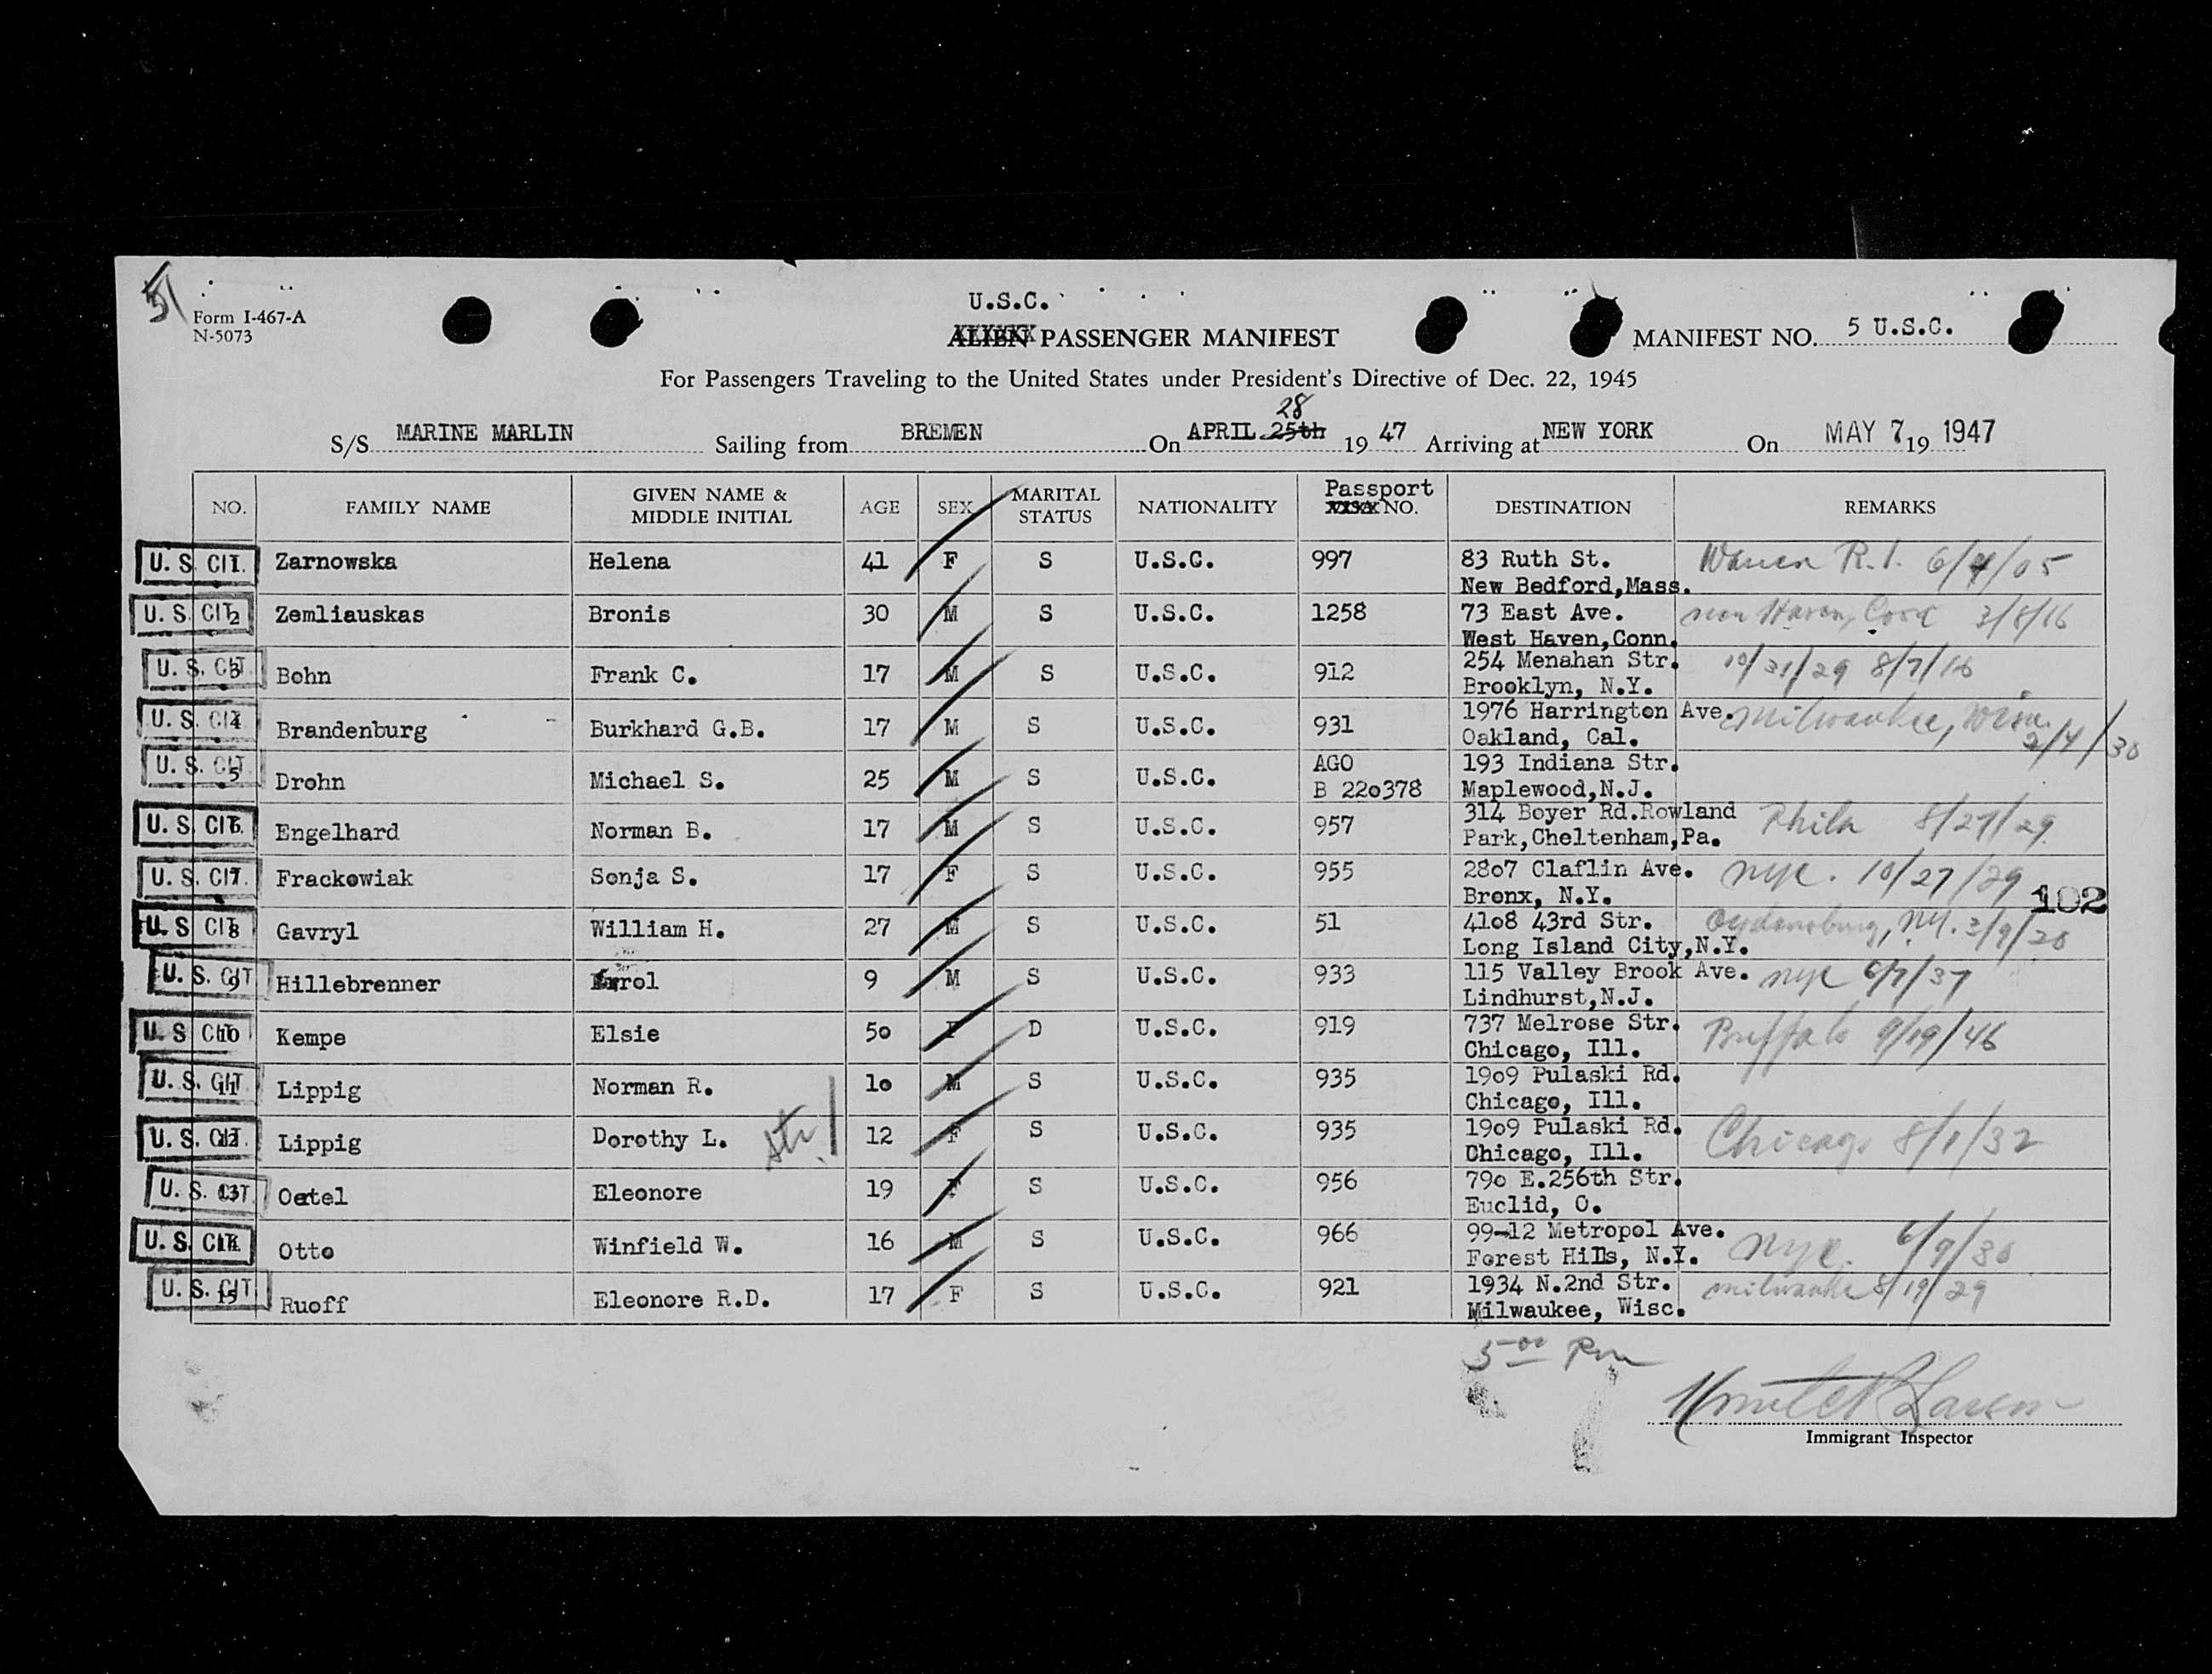 51
Form I-467-A
N-5073
U.S.C.
ALIEN PASSENGER MANIFEST
MANIFEST NO. 5 U.S.C.
For Passengers Traveling to the United States under President's Directive of Dec. 22, 1945
28
S/S MARINE MARLIN Sailing from BREMEN On APRIL 25th 19 47 Arriving at NEW YORK On MAY 7 19 1947
NO. FAMILY NAME GIVEN NAME & MIDDLE INITIAL AGE SEX MARITAL STATUS NATIONALITY Passport VISA NO. DESTINATION REMARKS
U. S. CIT. 1. Zarnowska Helena 41 F S U.S.C. 997 83 Ruth St. Warren R.I. 6/4/05
New Bedford,Mass.
U. S. CIT. 2 Zemliauskas Bronis 30 M S U.S.C. 1258 73 East Ave. New Haven, Conn 3/8/16
West Haven,Conn.
U. S. CIT. 3 Bohn Frank C. 17 M S U.S.C. 912 254 Menahan Str. 10/31/29 8/7/16
Brooklyn, N.Y.
U. S. CIT. 4 Brandenburg Burkhard G.B. 17 M S U.S.C. 931 1976 Harrington Ave. Milwaukee, Wisc.
Oakland, Cal. 2/4/30
U. S. CIT. 5 Drohn Michael S. 25 M S U.S.C. AGO 193 Indiana Str.
B 220378 Maplewood,N.J.
U. S. CIT. 6. Engelhard Norman B. 17 M S U.S.C. 957 314 Boyer Rd.Rowland Phila 8/27/29
Park,Cheltenham,Pa.
U. S. CIT. 7. Frackowiak Sonja S. 17 F S U.S.C. 955 2807 Claflin Ave. NYC. 10/27/29
Bronx, N.Y.
102
U. S. CIT. 8 Gavryl William H. 27 M S U.S.C. 51 4108 43rd Str. Ogdensburg, NY. 3/9/20
Long Island City,N.Y.
U. S. CIT. 9 Hillebrenner Errol 9 M S U.S.C. 933 115 Valley Brook Ave. NYC 6/7/37
Lindhurst,N.J.
U. S. CIT. 10 Kempe Elsie 50 F D U.S.C. 919 737 Melrose Str. Buffalo 9/19/46
Chicago, Ill.
U. S. CIT. 11 Lippig Norman R. 10 M S U.S.C. 935 1909 Pulaski Rd.
Chicago, Ill.
U. S. CIT. 12. Lippig Dorothy L. 12 F S U.S.C. 935 1909 Pulaski Rd. Chicago 8/1/32
Chicago, Ill.
U. S. CIT. 13 Oetel Eleonore 19 F S U.S.C. 956 790 E.256th Str.
Euclid, O.
U. S. CIT. 14 Otto Winfield W. 16 M S U.S.C. 966 99-12 Metropol Ave. NYC. 6/9/30
Forest Hills, N.Y.
U. S. CIT. 15 Ruoff Eleonore R.D. 17 F S U.S.C. 921 1934 N.2nd Str. Milwaukee 8/19/29
Milwaukee, Wisc.
5 00 Pm
Immigrant Inspector